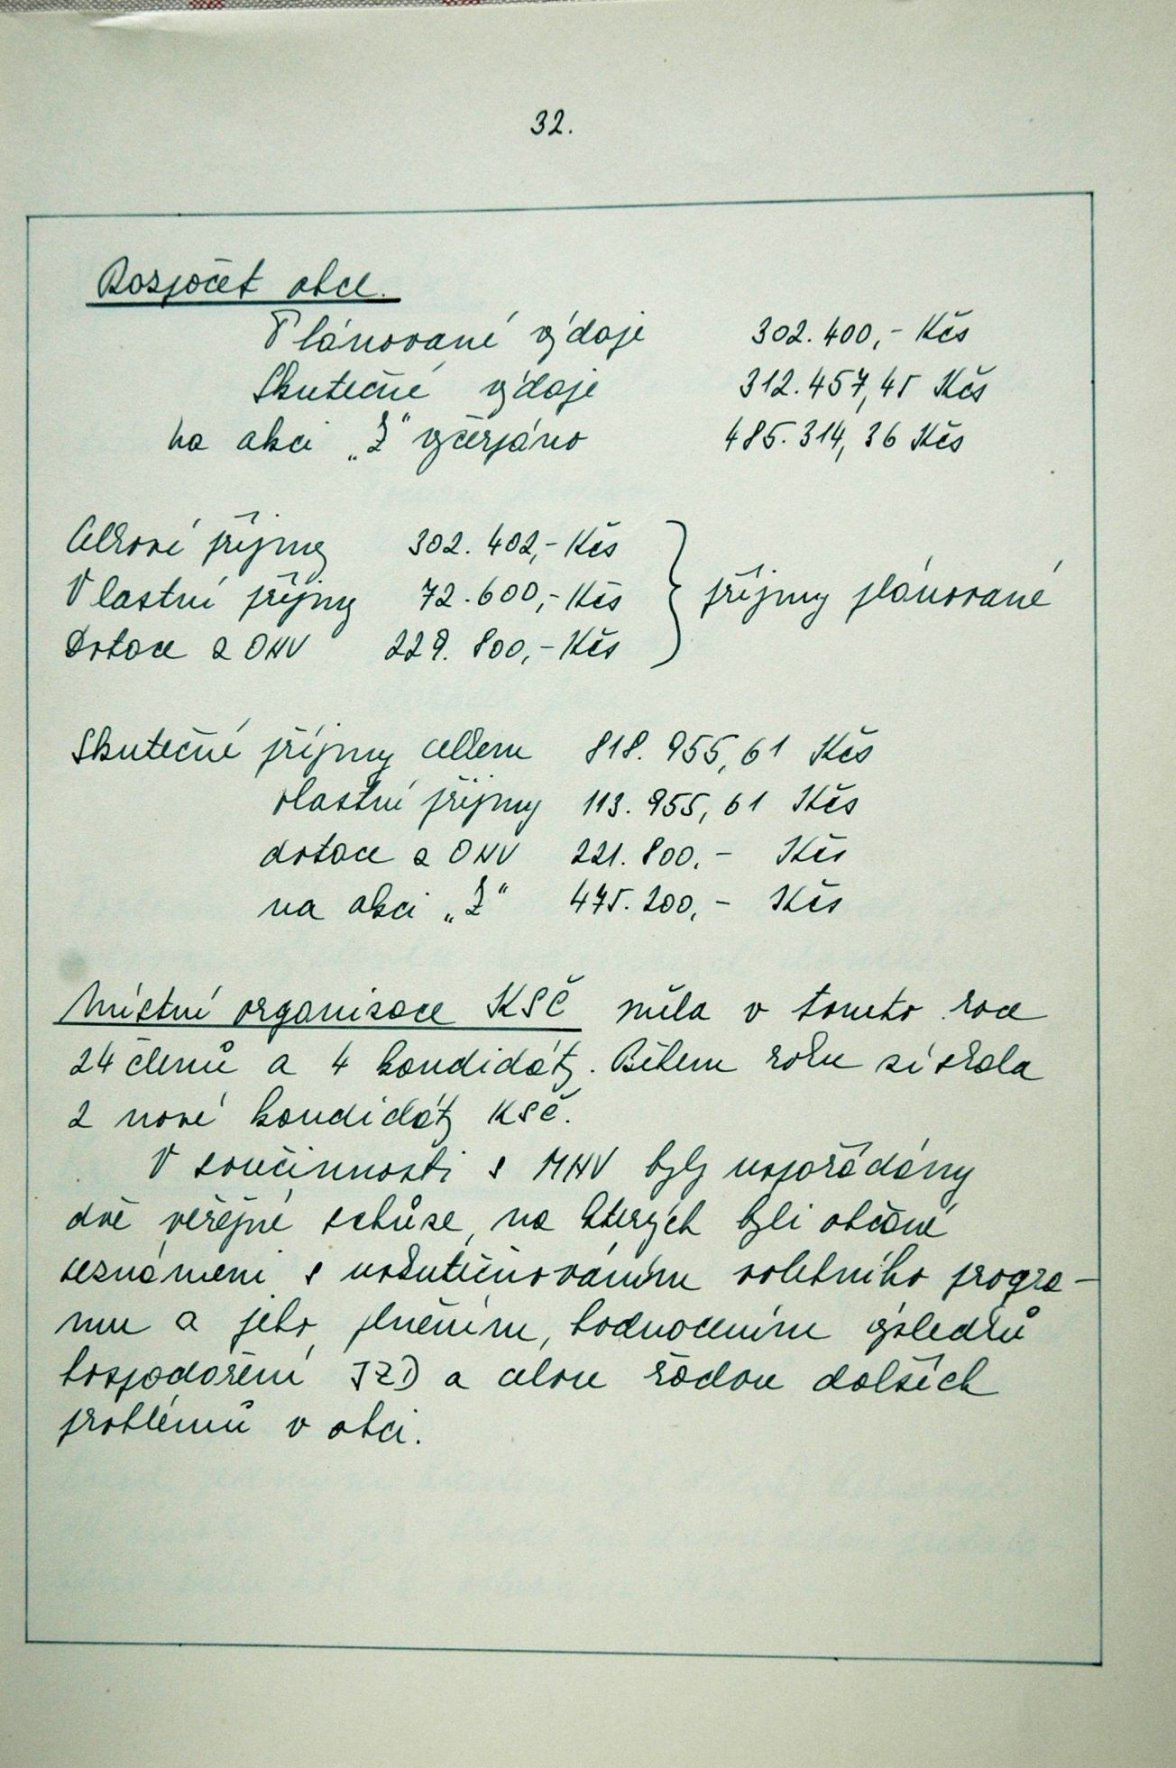 32.
Rozpočet obce.
Plánované výdaje 302.400,- Kčs
Skutečné výdaje 312.457,45 Kčs
na akci „Z" vyčerpáno 485.314,36 Kčs
Celkové příjmy 302.402,- Kčs
Vlastní příjmy 72.600,- Kčs } příjmy plánované
Dotace z ONV 229.800,- Kčs
Skutečné příjmy celkem 818.955,61 Kčs
vlastní příjmy 113.955,61 Kčs
dotace z ONV 221.800.- Kčs
na akci „Z" 475.200,- Kčs
Místní organisace KSČ měla v tomto roce
24 členů a 4 kandidáty. Během roku získala
2 nové kandidáty KSČ.
V součinnosti s MNV byly uspořádány
dvě veřejné schůze, na kterých byli občané
seznámeni s uskutečňováním volebního progra-
mu a jeho plněním, hodnocením výsledků
hospodaření JZD a celou řadou dalších
problémů v obci.